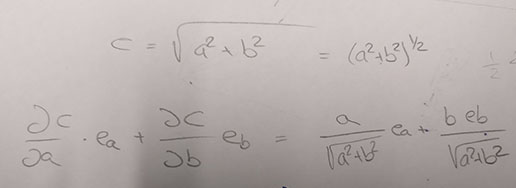 c = √(a² + b²) = (a²+b²)^1/2
1/2
∂c/∂a · e_a + ∂c/∂b e_b = a/√(a²+b²) e_a + b e_b/√(a²+b²)